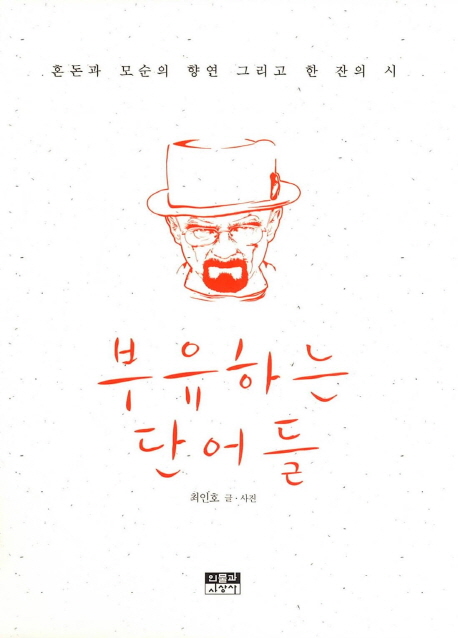 혼돈과 모순의 향연 그리고 한 잔의 시
부유하는
단어들
최인호 글·사진
인물과
사상사